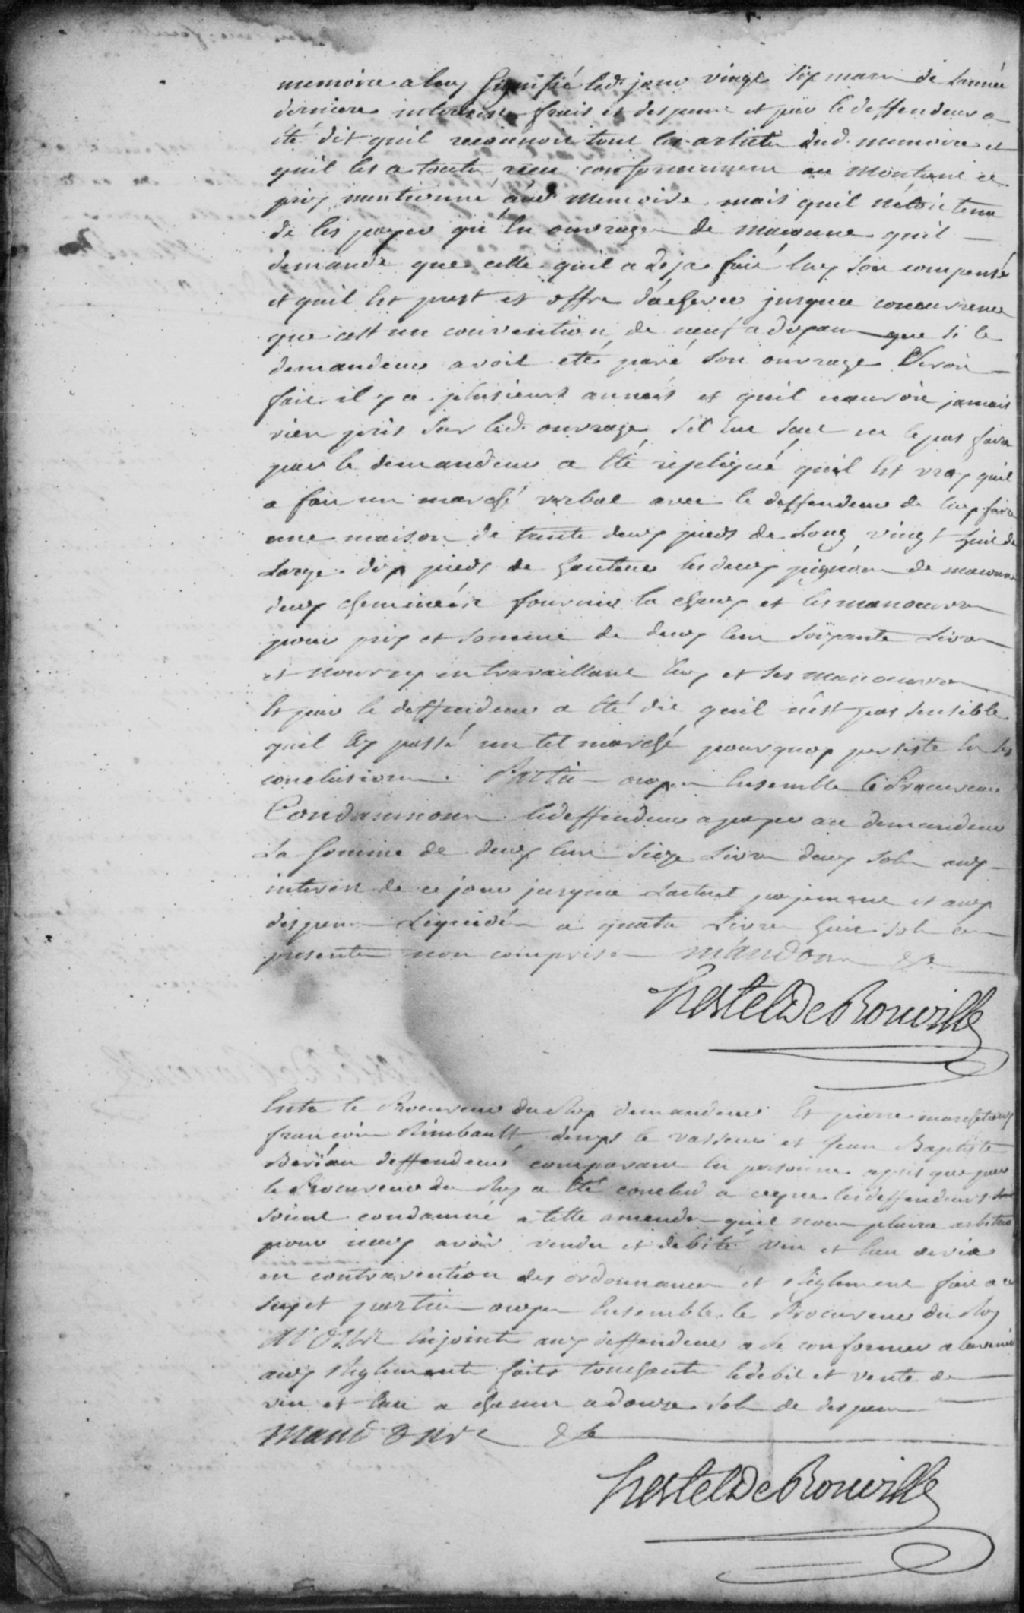 memoire a luy signifié led. jour vingt six mars de lannée
derniere interests frais et despens et par le deffendeur a
été dit quil reconnoit tout les articles dud. memoire et
quil les a toutes conformement au montant et
prix mentionné aud memoire. mais quil nétoit tenu
de les payer qu'en ouvrages de maconne quil
demande que celle quil a deja fait luy soit compensé
et quil est prest et offre dachever jusqua concurrence
que cest un convention de neuf a dix ans que si le
demandeur avoit été paré son ouvrage seroit
fait il y a plusieurs années et quil nauroit jamais
rien pris sur led. ouvrage sil eut sçu ne le pas faire
par le demandeur a été repliqué quil est vray quil
a fait un marché verbal avec le deffendeur de luy faire
une maison de trente deux pieds de long vingt huit de
large dix pieds de hauteur les deux pignons de maconne
deux cheminées fournir la chaux et les manoeuvres
pour prix et somme de deux cent soixante livres
et nourry en travaillant luy et ses manoeuvres
Et par le deffendeur a été dit quil n'est pas sensible
quil ay passé un tel marché pourquoy persiste en ses
conclusions. Parties ouyes Ensemble le Procureur
Condamnons le deffendeur a payer au demandeur
La somme de deux cent seize livres deux sols aux
interests de ce jour jusqua lactuel payement et aux
despens Liquidés a quatre Livres huit sols ces
presentes non comprises Mandons &c
hertel De Rouville
Entre le Procureur du Roy demandeur Et pierre
francois Rimbault, denys le vasseur et Jean Baptiste
deffendeurs comparant en personne apres que par
le Procureur du Roy a été conclud a ce que les deffendeurs
soient condamné a telle amende quil nous plaira arbitrer
pour iceux avoir vendu et debité vin et eau de vie
en contravention des ordonnances et Reglement fait a ce
sujet parties ouyes Ensemble le Procureur du Roy
Nous enjoint aux deffendeurs a se conformer a lavenir
aux Reglements faits touchants le debit et vente de
vin et eau a chacun a douze sols de despens
Mandons &c
hertel De Rouville